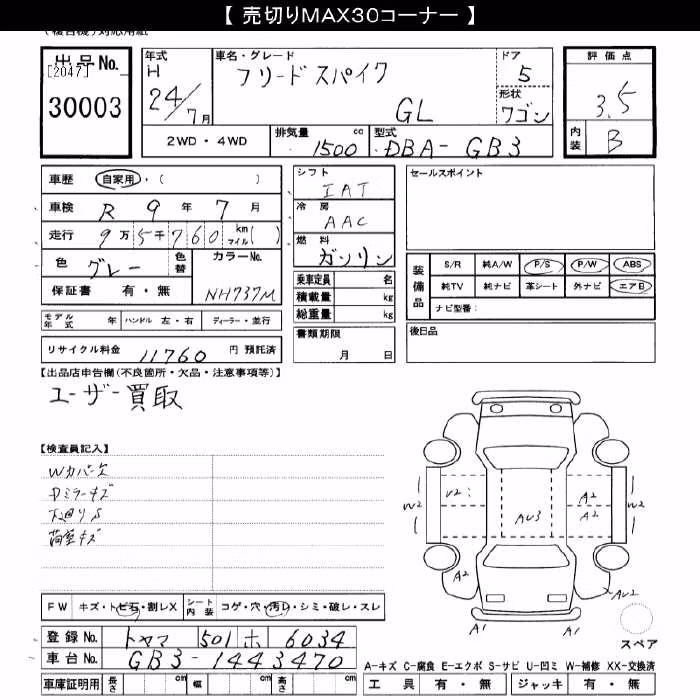 【 売切りMAX30コーナー 】
出品No.
[2047]
30003
年式
H
24/7月
車名・グレード
フリードスパイク
GL
ドア
5
形状
ワゴン
評価点
3.5
内装
B
2WD・4WD
排気量
1500 cc
型式
DBA-GB3
車歴 自家用・( )
車検 R 9年 7月
走行 9万5千760 km マイル( )
色 グレー
色替
カラーNo.
NH737M
保証書 有・無
モデル年式 年 ハンドル 左・右 ディーラー・並行
リサイクル料金 11760 円 預託済
シフト
IAT
冷房
AAC
燃料
ガソリン
乗車定員 名
積載量 kg
総重量 kg
書類期限
月 日
セールスポイント
装備品
S/R 純A/W P/S P/W ABS
純TV 純ナビ 革シート 外ナビ エアB
ナビ型番：
後日品
【出品店申告欄(不良箇所・欠品・注意事項等)】
ユーザー買取
【検査員記入】
Wカバー欠
Dミラーキズ
下廻りS
荷室キズ
W2
U2
AU3
A2
A2
W2
A2
AU2
A1
A1
スペア
FW キズ・トビ石・割レX シート内装 コゲ・穴・汚レ・シミ・破レ・スレ
登録No. トヤマ 501 ホ 6034
車台No. GB3-1443470
車庫証明用 長さ cm 幅 cm 高さ cm
A-キズ C-腐食 E-エクボ S-サビ U-凹ミ W-補修 XX-交換済
工具 有・無 ジャッキ 有・無